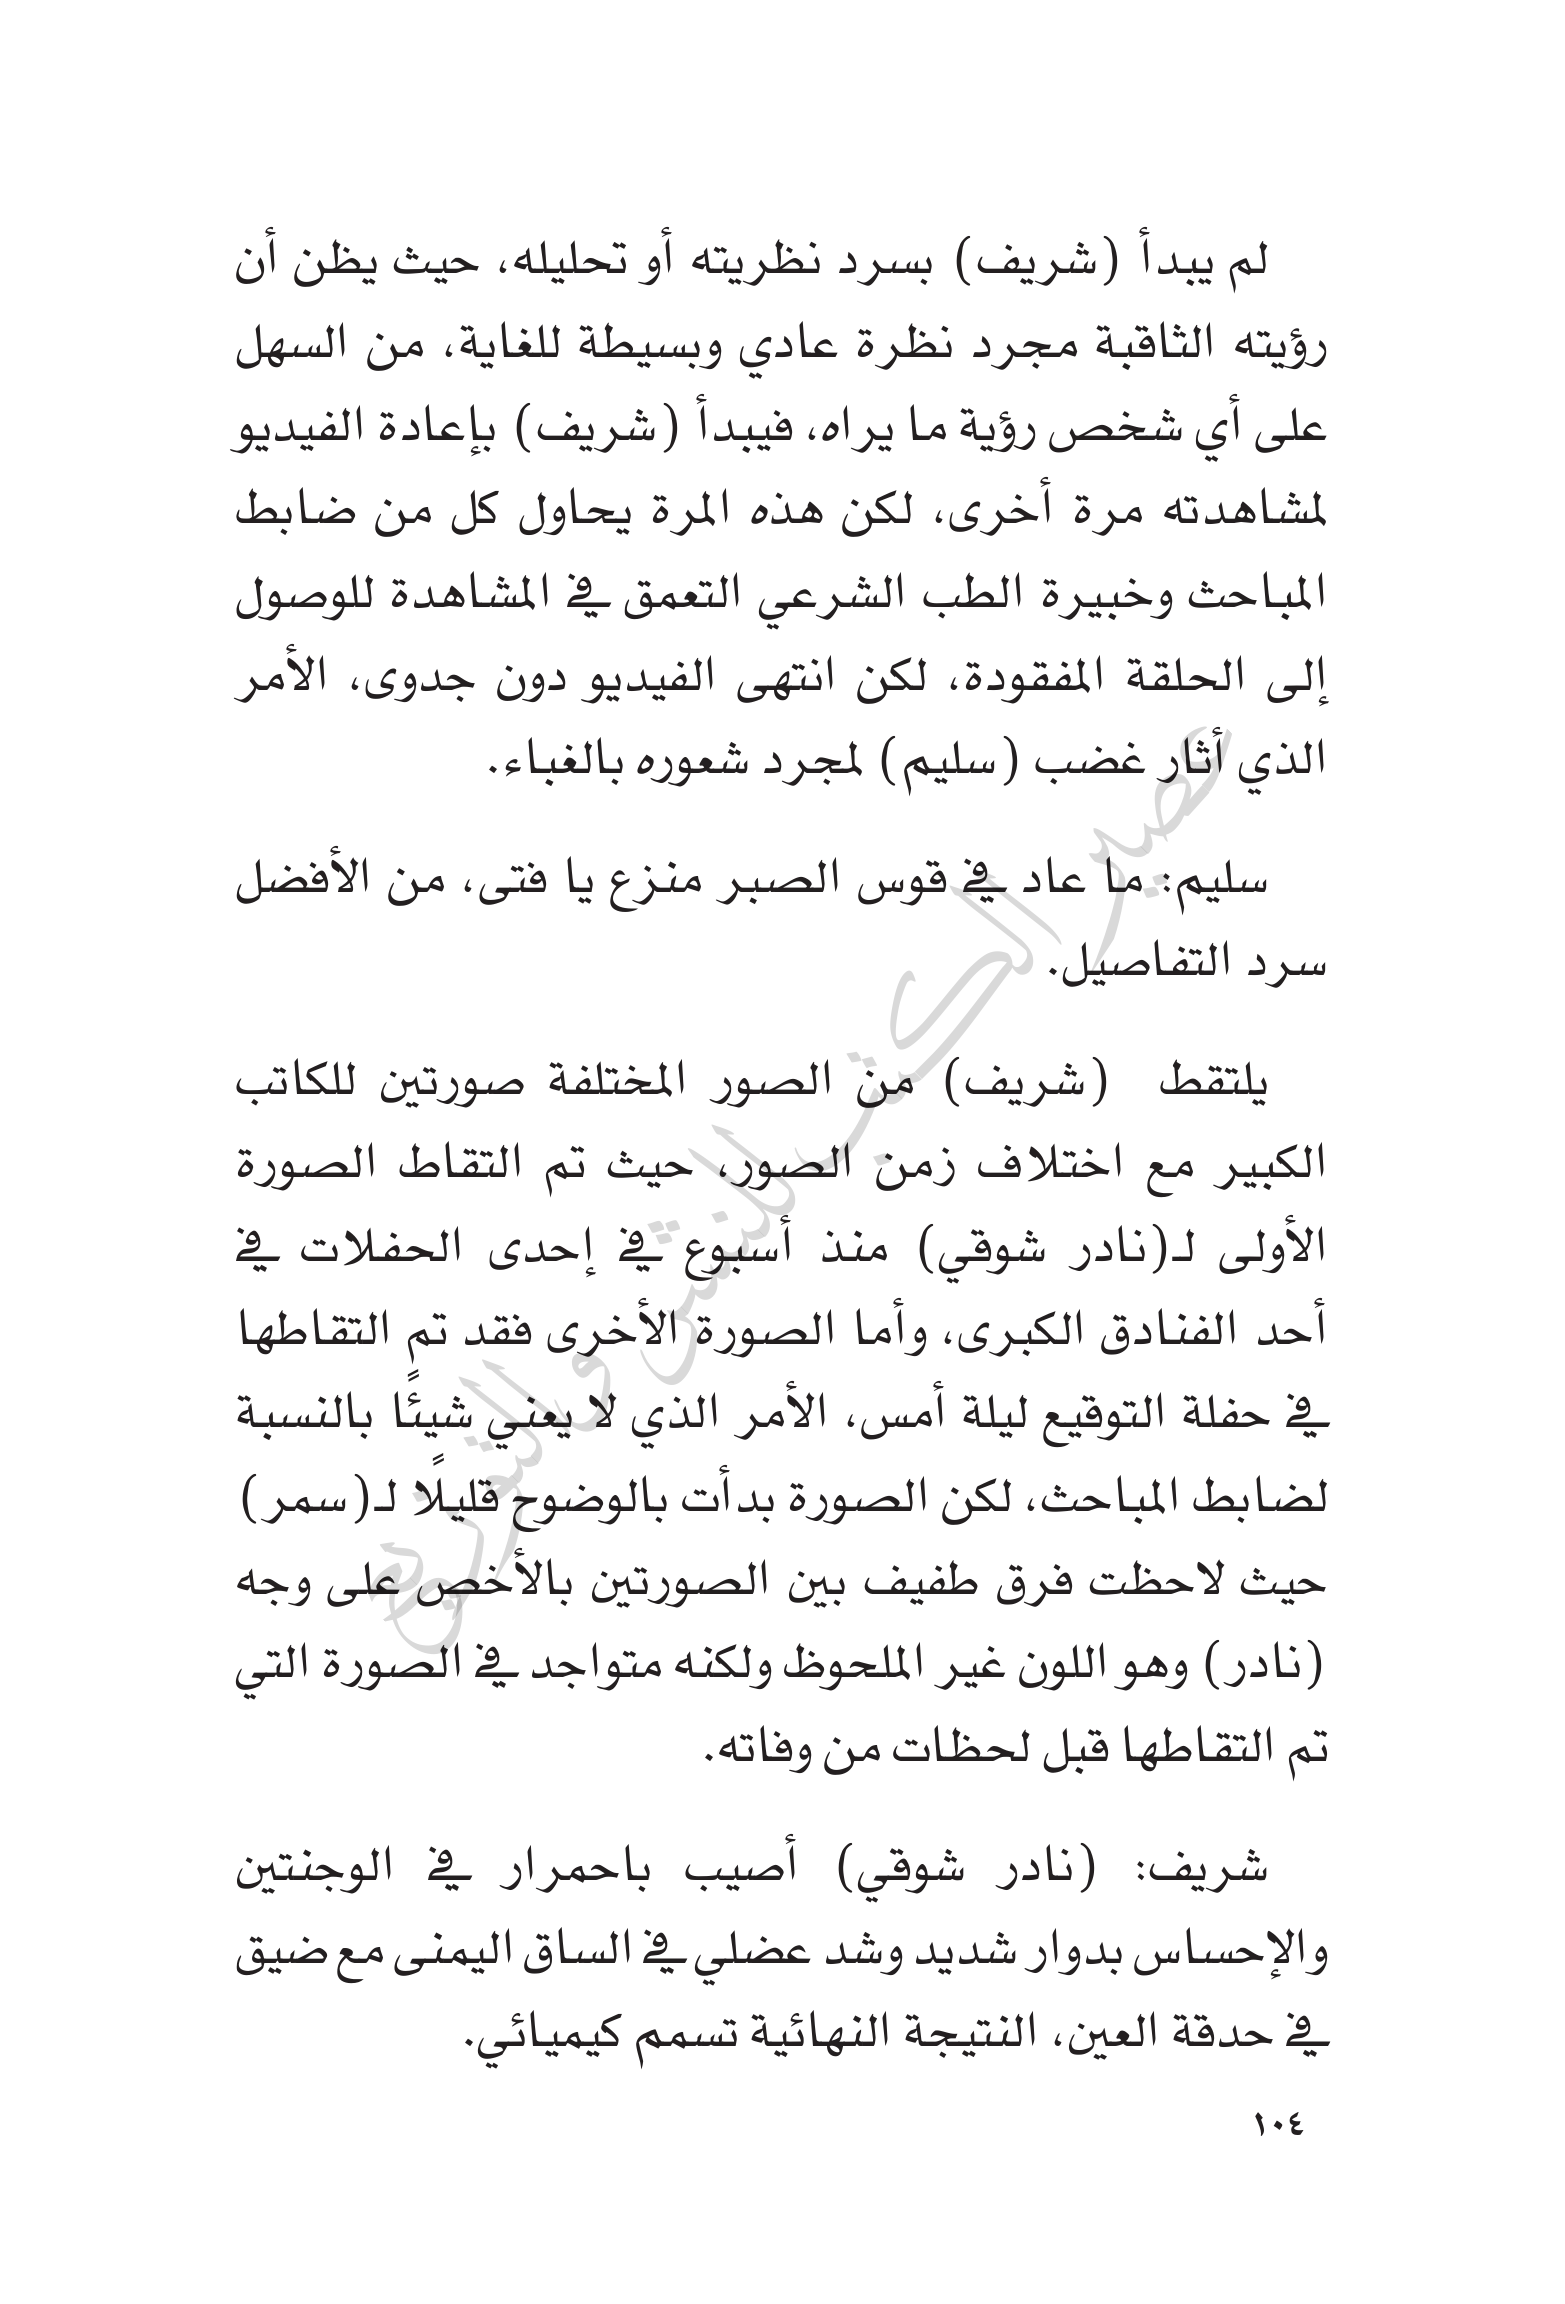 لم يبدأ (شريف) بسرد نظريته أو تحليله، حيث يظن أن
رؤيته الثاقبة مجرد نظرة عادي وبسيطة للغاية، من السهل
على أي شخص رؤية ما يراه، فيبدأ (شريف) بإعادة الفيديو
لمشاهدته مرة أخرى، لكن هذه المرة يحاول كل من ضابط
المباحث وخبيرة الطب الشرعي التعمق في المشاهدة للوصول
إلى الحلقة المفقودة، لكن انتهى الفيديو دون جدوى، الأمر
الذي أثار غضب (سليم) لمجرد شعوره بالغباء.
سليم: ما عاد في قوس الصبر منزع يا فتى، من الأفضل
سرد التفاصيل.
يلتقط (شريف) من الصور المختلفة صورتين للكاتب
الكبير مع اختلاف زمن الصور، حيث تم التقاط الصورة
الأولى لـ(نادر شوقي) منذ أسبوع في إحدى الحفلات في
أحد الفنادق الكبرى، وأما الصورة الأخرى فقد تم التقاطها
في حفلة التوقيع ليلة أمس، الأمر الذي لا يعني شيئًا بالنسبة
لضابط المباحث، لكن الصورة بدأت بالوضوح قليلًا لـ(سمر)
حيث لاحظت فرق طفيف بين الصورتين بالأخص على وجه
(نادر) وهو اللون غير الملحوظ ولكنه متواجد في الصورة التي
تم التقاطها قبل لحظات من وفاته.
شريف: (نادر شوقي) أصيب باحمرار في الوجنتين
والإحساس بدوار شديد وشد عضلي في الساق اليمنى مع ضيق
في حدقة العين، النتيجة النهائية تسمم كيميائي.
١٠٤
عصير الكتب للنشر والتوزيع